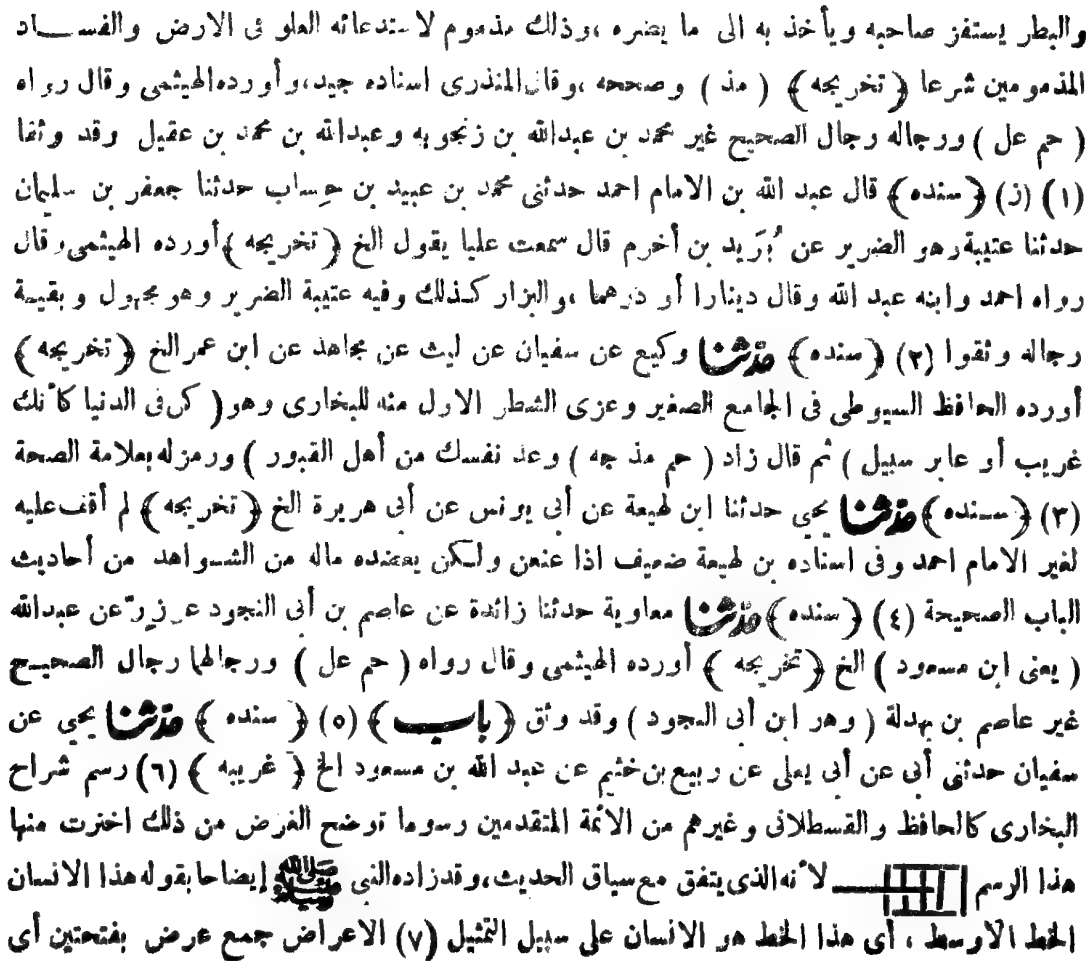 والبطر يستفز صاحبه ويأخذ به الى ما يضره ،وذلك مذموم لاستدعائه العلو فى الارض والفســـاد
المذمومين شرعا ﴿ تخريجه ﴾ ( مذ ) وصححه ،وقال المنذرى اسناده جيد،وأورده الهيثمى وقال رواه
( حم عل ) ورجاله رجال الصحيح غير محمد بن عبدالله بن زنجويه وعبدالله بن محمد بن عقيل وقد وثقا
(١) (ز) ﴿ سنده ﴾ قال عبد الله بن الامام احمد حدثنى محمد بن عبيد بن حِساب حدثنا جعفر بن سليمان
حدثنا عتيبة وهو الضرير عن بُرَيد بن أخرم قال سمعت عليا يقول الخ ﴿ تخريجه ﴾ أورده الهيثمى وقال
رواه احمد وابنه عبد الله وقال دينارا أو درهما ،والبزار كـذلك وفيه عتيبة الضرير وهو مجهول وبقيـة
رجاله وثقوا (٢) ﴿ سنده ﴾ حدثنا وكيع عن سفيان عن ليث عن مجاهد عن ابن عمر الخ ﴿ تخريجه ﴾
أورده الحافظ السيوطى فى الجامع الصغير وعزى الشطر الاول منه للبخارى وهو ( كن فى الدنيا كأنك
غريب أو عابر سبيل ) ثم قال زاد ( حم مذ جه ) وعد نفسك من أهل القبور ) ورمز له بعلامة الصحة
(٣) ﴿ سـنده ﴾ حدثنا يحيى حدثنا ابن لهيعة عن أبى يونس عن أبى هريرة الخ ﴿ تخريجه ﴾ لم أقف عليه
لغير الامام احمد وفى اسناده بن لهيعة ضعيف اذا عنعن ولـكن يعضده ماله من الشـواهد من أحاديث
الباب الصحيحة (٤) ﴿ سنده ﴾ حدثنا معاوية حدثنا زائدة عن عاصم بن أبى النجود عن زر عن عبدالله
( يعنى ابن مسعود ) الخ ﴿ تخريجه ﴾ أورده الهيثمى وقال رواه ( حم عل ) ورجالهما رجال الصحيـح
غير عاصم بن بهدلة ( وهو ابن أبى النجود ) وقد وثق ﴿ باب ﴾ (٥) ﴿ سنده ﴾ حدثنا يحيى عن
سفيان حدثنى أبى عن أبى يعلى عن ربيع بن خثيم عن عبد الله بن مسعود الخ ﴿ غريبه ﴾ (٦) رسم شراح
البخارى كالحافظ والقسطلانى وغيرهم من الائمة المتقدمين رسوما توضح الغرض من ذلك اخترت منها
هذا الرسم لأنه الذى يتفق مع سياق الحديث،وقد زاده النبى ﷺ إيضاحا بقوله هذا الانسان
الخط الأوسط ، أى هذا الخط هو الانسان على سبيل التمثيل (٧) الاعراض جمع عرض بفتحتين أى